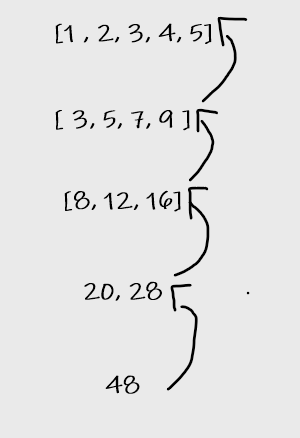 [1, 2, 3, 4, 5]
[3, 5, 7, 9]
[8, 12, 16]
20, 28
48